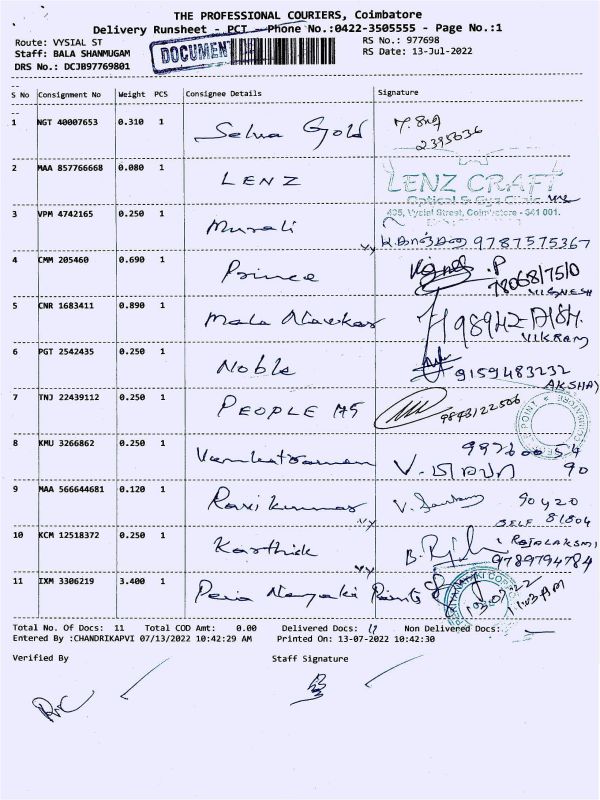 THE PROFESSIONAL COURIERS, Coimbatore
Delivery Runsheet - PCT - Phone No.:0422-3505555 - Page No.:1
Route: VYSIAL ST DOCUMENT RS No.: 977698
Staff: BALA SHANMUGAM RS Date: 13-Jul-2022
DRS No.: DCJB97769801
S No Consignment No Weight PCS Consignee Details Signature
1 NGT 40007653 0.310 1 Selva Gold 2395036
2 MAA 857766668 0.080 1 LENZ LENZ CRAFT
Optical & Eye Clinic
435, Vysial Street, Coimbatore - 641 001.
3 VPM 4742165 0.250 1 Murali 9787575367
4 CMM 205460 0.690 1 Prince
VIGNESH
5 CNR 1683411 0.890 1 Mala
VIKRAM
6 PGT 2542435 0.250 1 Noble 9159483232
AKSHAY
7 TNJ 22439112 0.250 1 PEOPLE 9843122506
8 KMU 3266862 0.250 1 Venkatraman
90
9 MAA 566644681 0.120 1 Ravikumar 90420
SELF 81804
10 KCM 12518372 0.250 1 Karthick RAJALAKSMI
9789794784
11 IXM 3306219 3.400 1 Peria Nayaki Paints
Total No. Of Docs: 11 Total COD Amt: 0.00 Delivered Docs: 11 Non Delivered Docs:
Entered By :CHANDRIKAPVI 07/13/2022 10:42:29 AM Printed On: 13-07-2022 10:42:30
Verified By Staff Signature